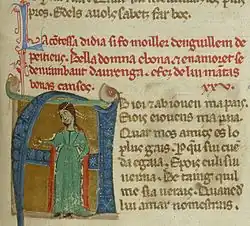 pros. Edels auols sabet far bos.
La cōtessa didia si fo moiller d'enguillem de
peiticus. Bella domna e bona. & enamoret se
den raimbaut daurenga. & fez de lui maītas
bonas cansos.
ab ioi & ab iouen ma pais.
& iois e iouens ma pais
Quar mos amics es lo
plus gais. P qu sui
& gaia. E pois eu li sui
ueraia. Be taing quil
me sia uerais. Quanc de
lui amar no mestrais.